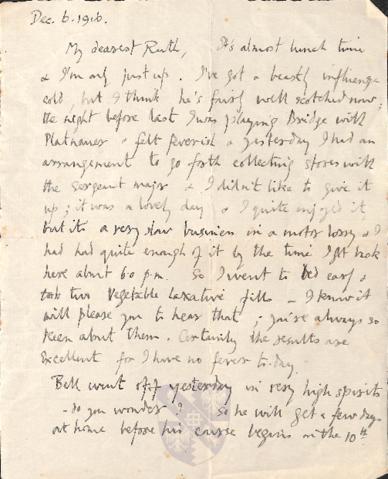 Dec. 6. 1916.
My dearest Ruth, Its almost lunch time
& I'm only just up. I've got a beastly influenza
cold, but I think he's fairly well scotched now;
the night before last I was playing Bridge with
& felt feverish & yesterday I had an
arrangement to go forth collecting stores with
the Sergeant major & I didn't like to give it
up; it was a lovely day & I quite enjoyed it
but its a very slow business in a motor lorry & I
had had quite enough of it by the time I got back
here about 6.0 p.m. So I went to bed early &
took two Vegetable Laxative pills – I know it
will please you to hear that; you're always so
keen about them. Certainly the results are
excellent for I have no fever to-day.
Bell went off yesterday in very high spirits
- do you wonder? So he will get a few days
at home before his course begins on the 10th